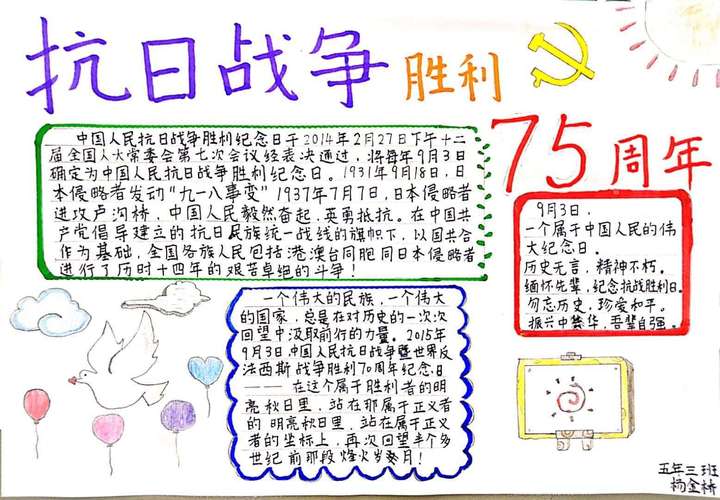 抗日战争胜利
75周年
中国人民抗日战争胜利纪念日于2014年2月27日下午十二
届全国人大常委会第七次会议经表决通过，将每年9月3日
确定为中国人民抗日战争胜利纪念日。1931年9月18日，日
本侵略者发动“九一八事变”1937年7月7日，日本侵略者
进攻卢沟桥，中国人民毅然奋起，英勇抵抗。在中国共
产党倡导建立的抗日民族统一战线的旗帜下，以国共合
作为基础，全国各族人民包括港澳台同胞同日本侵略者
进行了历时十四年的艰苦卓绝的斗争！
9月3日，
一个属于中国人民的伟
大纪念日。
历史无言，精神不朽。
缅怀先辈，纪念抗战胜利日。
勿忘历史，珍爱和平。
振兴中华，吾辈自强。
一个伟大的民族，一个伟大
的国家，总是在对历史的一次次
回望中汲取前行的力量。2015年
9月3日，中国人民抗日战争暨世界反
法西斯战争胜利70周年纪念日
——在这个属于胜利者的明
亮秋日里，站在那属于正义者
的明亮秋日里，站在属于正义
者的坐标上，再次回望半个多
世纪前那段烽火岁月！
五年三班
杨金